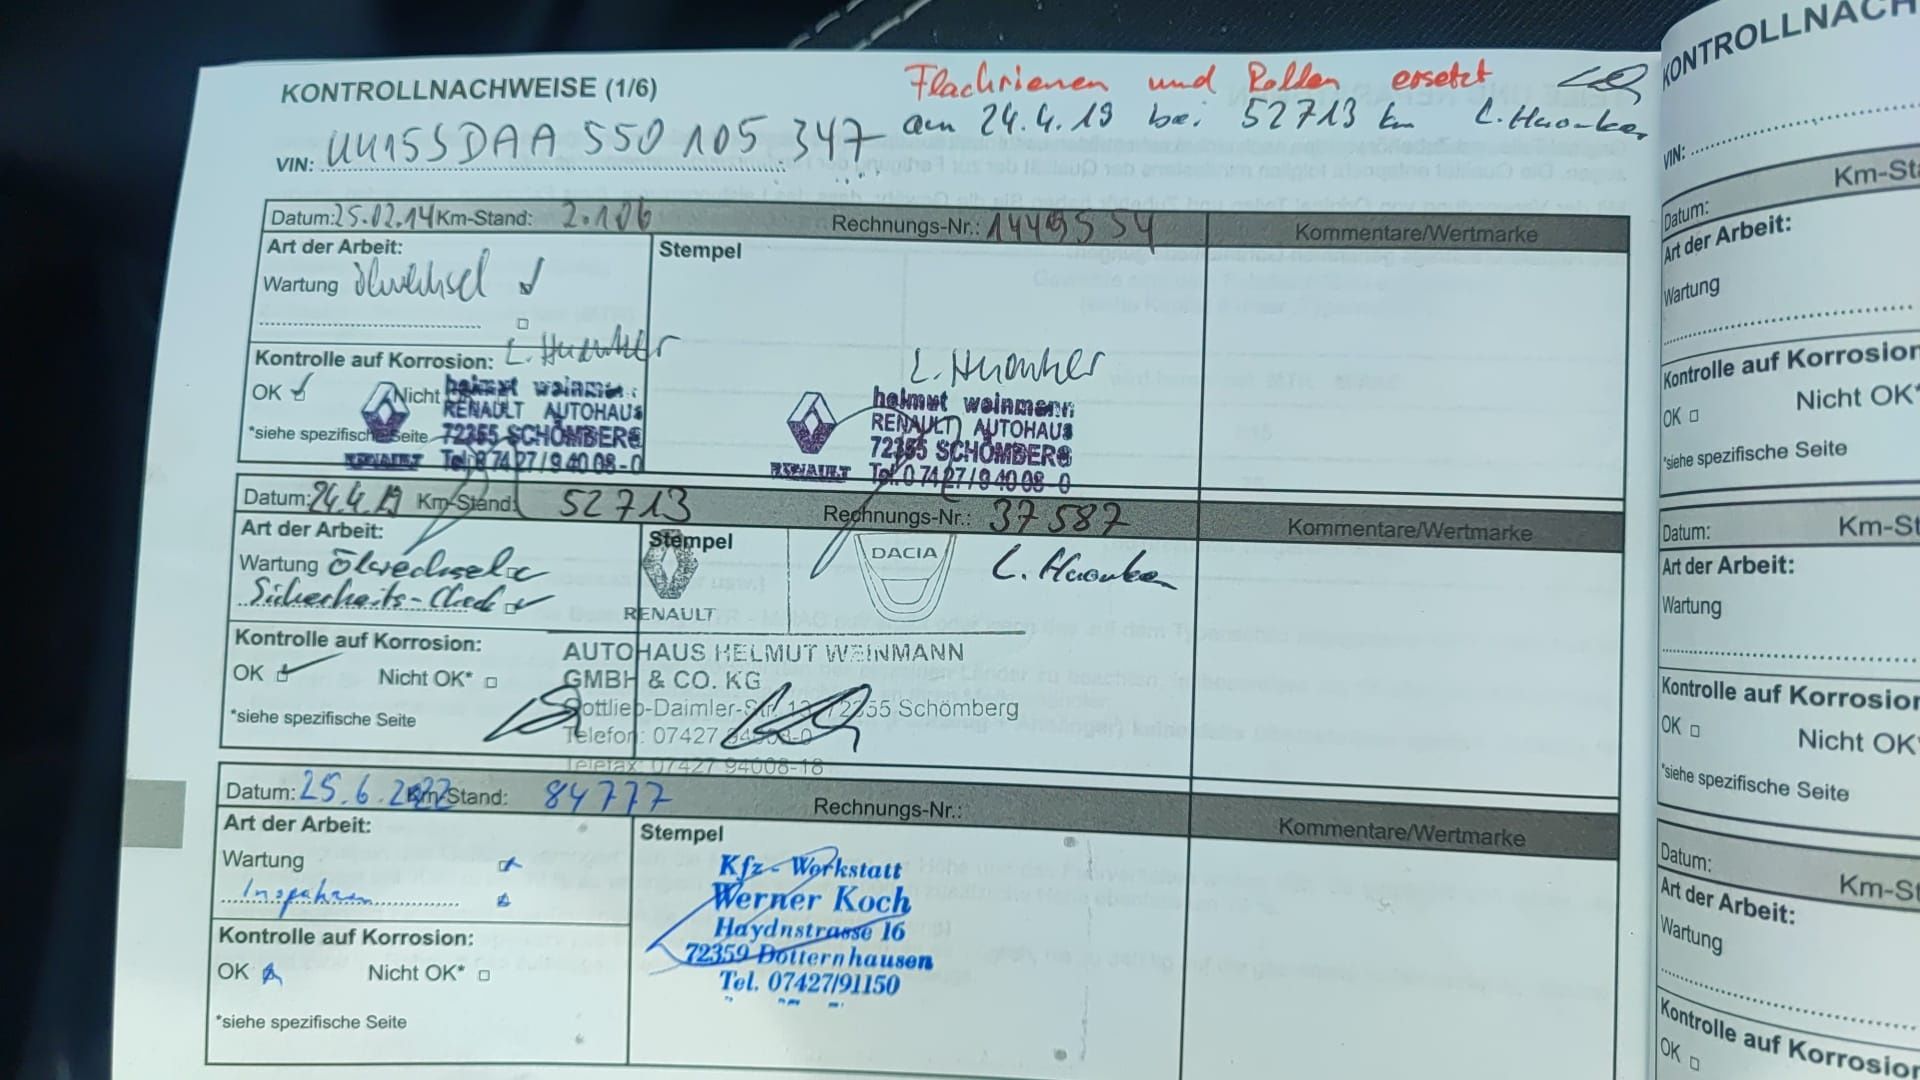 KONTROLLNACHWEISE (1/6)
Flachriemen und Rollen ersetzt
am 24.4.19 bei 52713 km
VIN: UU1SSDAA550105347
Datum: 25.02.14 Km-Stand: 2.106 Rechnungs-Nr.: Kommentare/Wertmarke
Art der Arbeit: Stempel
Wartung Ölwechsel
Kontrolle auf Korrosion:
OK Nicht
*siehe spezifische Seite
helmut weinmann
RENAULT AUTOHAUS
72355 SCHÖMBERG
RENAULT Tel. 07427/94008-0
helmut weinmann
RENAULT AUTOHAUS
72355 SCHÖMBERG
RENAULT Tel. 07427/94008-0
Datum: 24.4.19 Km-Stand: 52713 Rechnungs-Nr.: 37587 Kommentare/Wertmarke
Art der Arbeit: Stempel
Wartung Ölwechsel
Sicherheits-Check
RENAULT DACIA
Kontrolle auf Korrosion:
OK Nicht OK*
*siehe spezifische Seite
AUTOHAUS HELMUT WEINMANN
GMBH & CO. KG
Gottlieb-Daimler-Str. 13, 72355 Schömberg
Telefon: 07427 94008-0
Telefax: 07427 94008-18
Datum: 25.6.2022 Km-Stand: 84777 Rechnungs-Nr.: Kommentare/Wertmarke
Art der Arbeit: Stempel
Wartung
Kontrolle auf Korrosion:
OK Nicht OK*
*siehe spezifische Seite
Kfz-Werkstatt
Werner Koch
Haydnstrasse 16
72359 Dotternhausen
Tel. 07427/91150
KONTROLLNACH
VIN:
Datum: Km-Sta
Art der Arbeit:
Wartung
Kontrolle auf Korrosion
OK Nicht OK*
*siehe spezifische Seite
Datum: Km-St
Art der Arbeit:
Wartung
Kontrolle auf Korrosion
OK Nicht OK*
*siehe spezifische Seite
Datum: Km-St
Art der Arbeit:
Wartung
Kontrolle auf Korrosion
OK